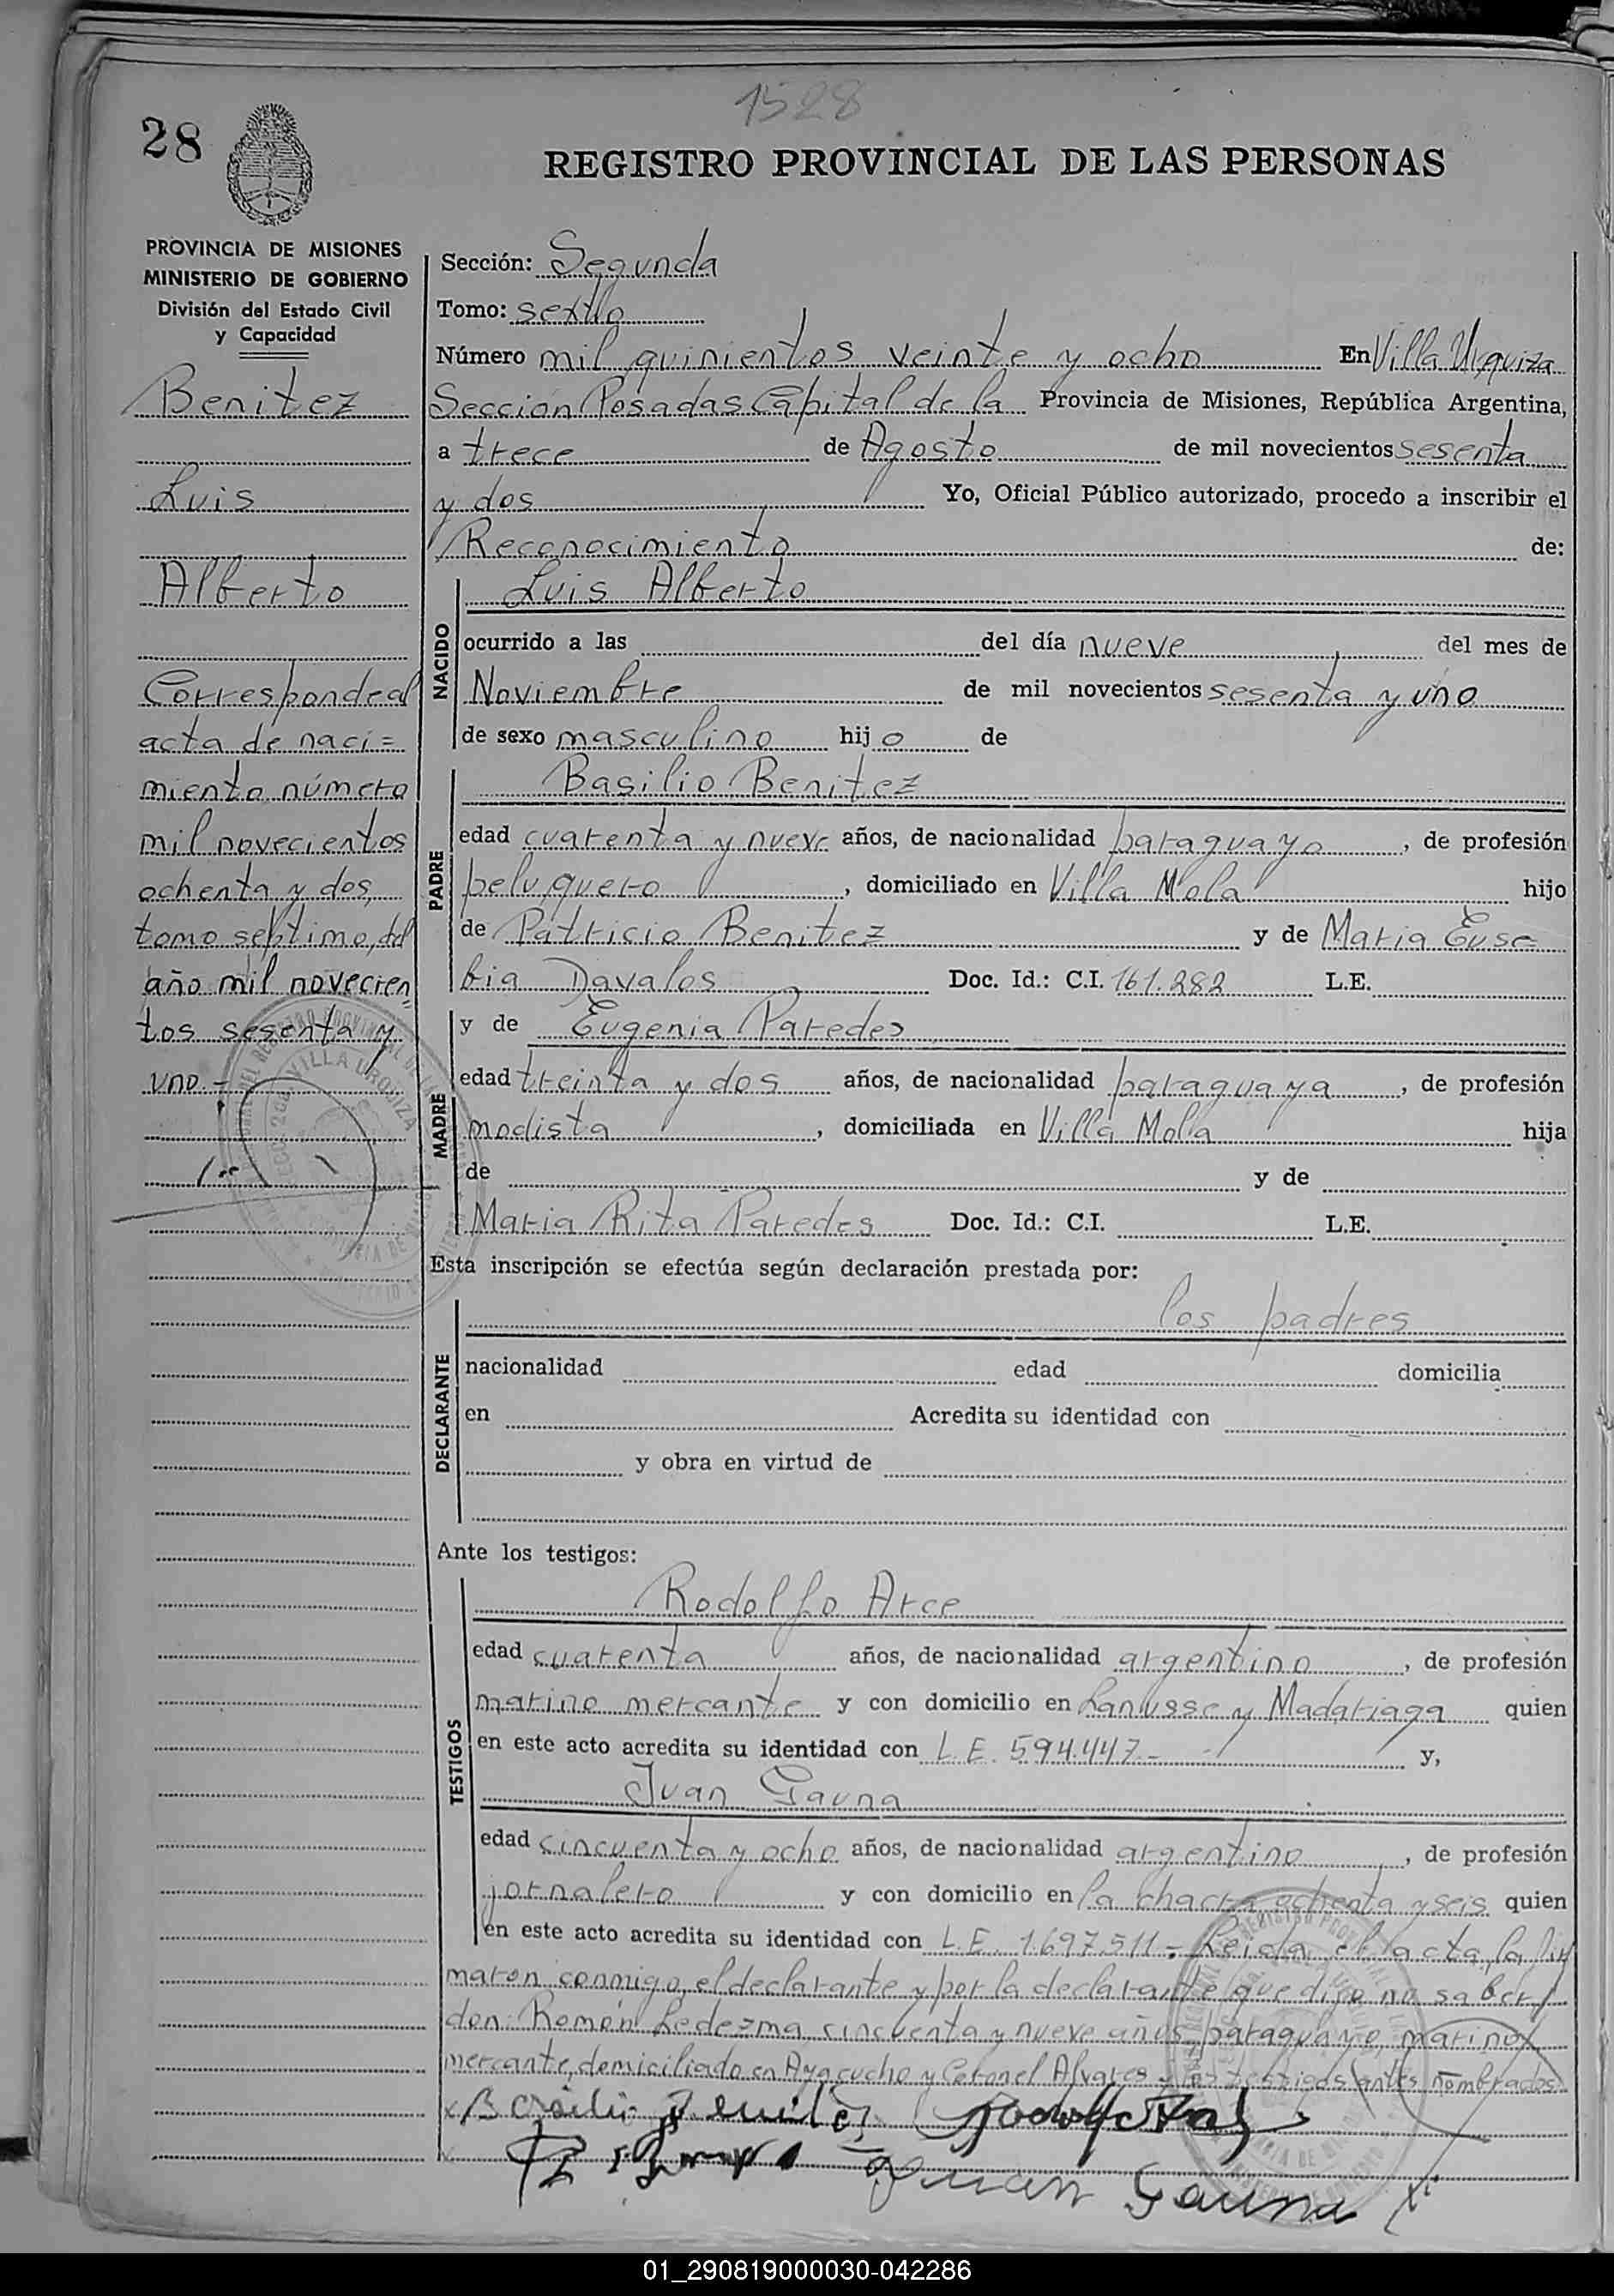 1528
28
REGISTRO PROVINCIAL DE LAS PERSONAS
PROVINCIA DE MISIONES
MINISTERIO DE GOBIERNO
División del Estado Civil
y Capacidad
Benitez
Luis
Alberto
Corresponde al
acta de naci=
miento número
mil novecientos
ochenta y dos,
tomo septimo, del
año mil novecien
tos sesenta y
uno.-
Sección: Segunda
Tomo: sexto
Número mil quinientos veinte y ocho En Villa Urquiza
Sección Posadas Capital de la Provincia de Misiones, República Argentina,
a trece de Agosto de mil novecientos sesenta
y dos Yo, Oficial Público autorizado, procedo a inscribir el
Reconocimiento de:
NACIDO
Luis Alberto
ocurrido a las del día nueve del mes de
Noviembre de mil novecientos sesenta y uno
de sexo masculino hijo de
PADRE
Basilio Benitez
edad cuarenta y nueve años, de nacionalidad paraguayo, de profesión
peluquero, domiciliado en Villa Mola hijo
de Patricio Benitez y de Maria Euse=
bia Davalos Doc. Id.: C.I. 161.282 L.E.
MADRE
y de Eugenia Paredes
edad treinta y dos años, de nacionalidad paraguaya, de profesión
modista, domiciliada en Villa Mola hija
de y de
Maria Rita Paredes Doc. Id.: C.I. L.E.
Esta inscripción se efectúa según declaración prestada por:
DECLARANTE
los padres
nacionalidad edad domicilia
en Acredita su identidad con
y obra en virtud de
Ante los testigos:
TESTIGOS
Rodolfo Arce
edad cuarenta años, de nacionalidad argentino, de profesión
marino mercante y con domicilio en Lanusse y Madariaga quien
en este acto acredita su identidad con L.E. 594.447- y,
Juan Gauna
edad cincuenta y ocho años, de nacionalidad argentino, de profesión
jornalero y con domicilio en la chacra ochenta y seis quien
en este acto acredita su identidad con L.E. 1.697.511.= Leida el acta, la fir
maron conmigo, el declarante y por la declarante que dijo no saber,
don: Romón Ledezma cincuenta y nueve años, paraguayo, marino
mercante, domiciliado en Ayacucho y Coronel Alvares y los testigos antes nombrados
Juan Gauna
01_290819000030-042286